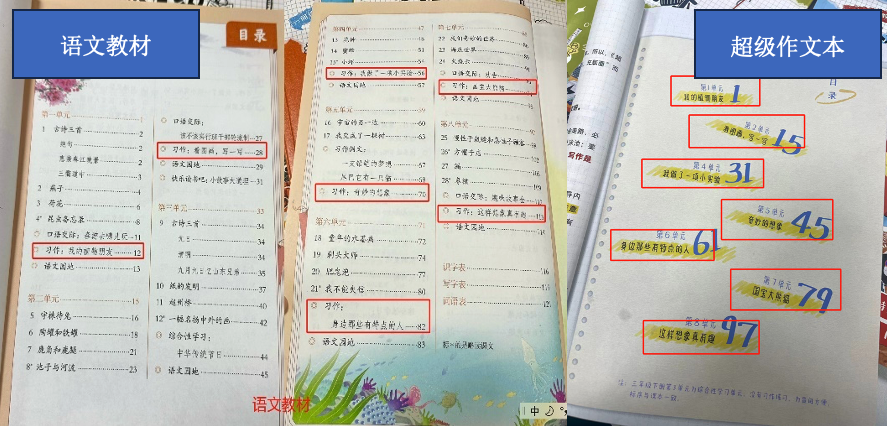 语文教材
目录
第一单元
1 古诗三首 2
绝句 2
惠崇春江晚景 2
三衢道中 3
2 燕子 4
3 荷花 6
4* 昆虫备忘录 8
口语交际：春游去哪儿玩 11
习作：我的植物朋友 12
语文园地 13
第二单元 15
5 守株待兔 16
6 陶罐和铁罐 18
7 鹿角和鹿腿 21
8* 池子与河流 23
口语交际：
该不该实行班干部轮流制 27
习作：看图画，写一写 28
语文园地 29
快乐读书吧：小故事大道理 31
第三单元 33
9 古诗三首 34
元日 34
清明 34
九月九日忆山东兄弟 35
10 纸的发明 37
11 赵州桥 40
12* 一幅名扬中外的画 42
综合性学习：
中华传统节日 44
语文园地 45
语文教材
第四单元 47
14 蜜蜂 51
习作：我做了一项小实验 56
语文园地 57
第五单元
16 宇宙的另一边 60
17 我变成了一棵树 63
习作例文：
一支铅笔的梦想 67
尾巴它有一只猫 68
习作：奇妙的想象 70
第六单元 71
18 童年的水墨画 72
19 剃头大师 74
20 肥皂泡 77
21* 我不能失信 80
习作：
身边那些有特点的人 82
语文园地 83
第七单元
22 我们奇妙的世界
23 海底世界
24 火烧云
口语交际：劝告
习作：国宝大熊猫
语文园地
第八单元
25 慢性子裁缝和急性子顾客
26* 方帽子店
27 漏
28* 枣核
口语交际：趣味故事会
习作：这样想象真有趣
语文园地
识字表 116
写字表
词语表
中
超级作文本
目
录
第1单元
我的植物朋友 1
第2单元
看图画，写一写 15
第4单元
我做了一项小实验 31
第5单元
奇妙的想象 45
第6单元
身边那些有特点的人 61
第7单元
国宝大熊猫 79
第8单元
这样想象真有趣 97